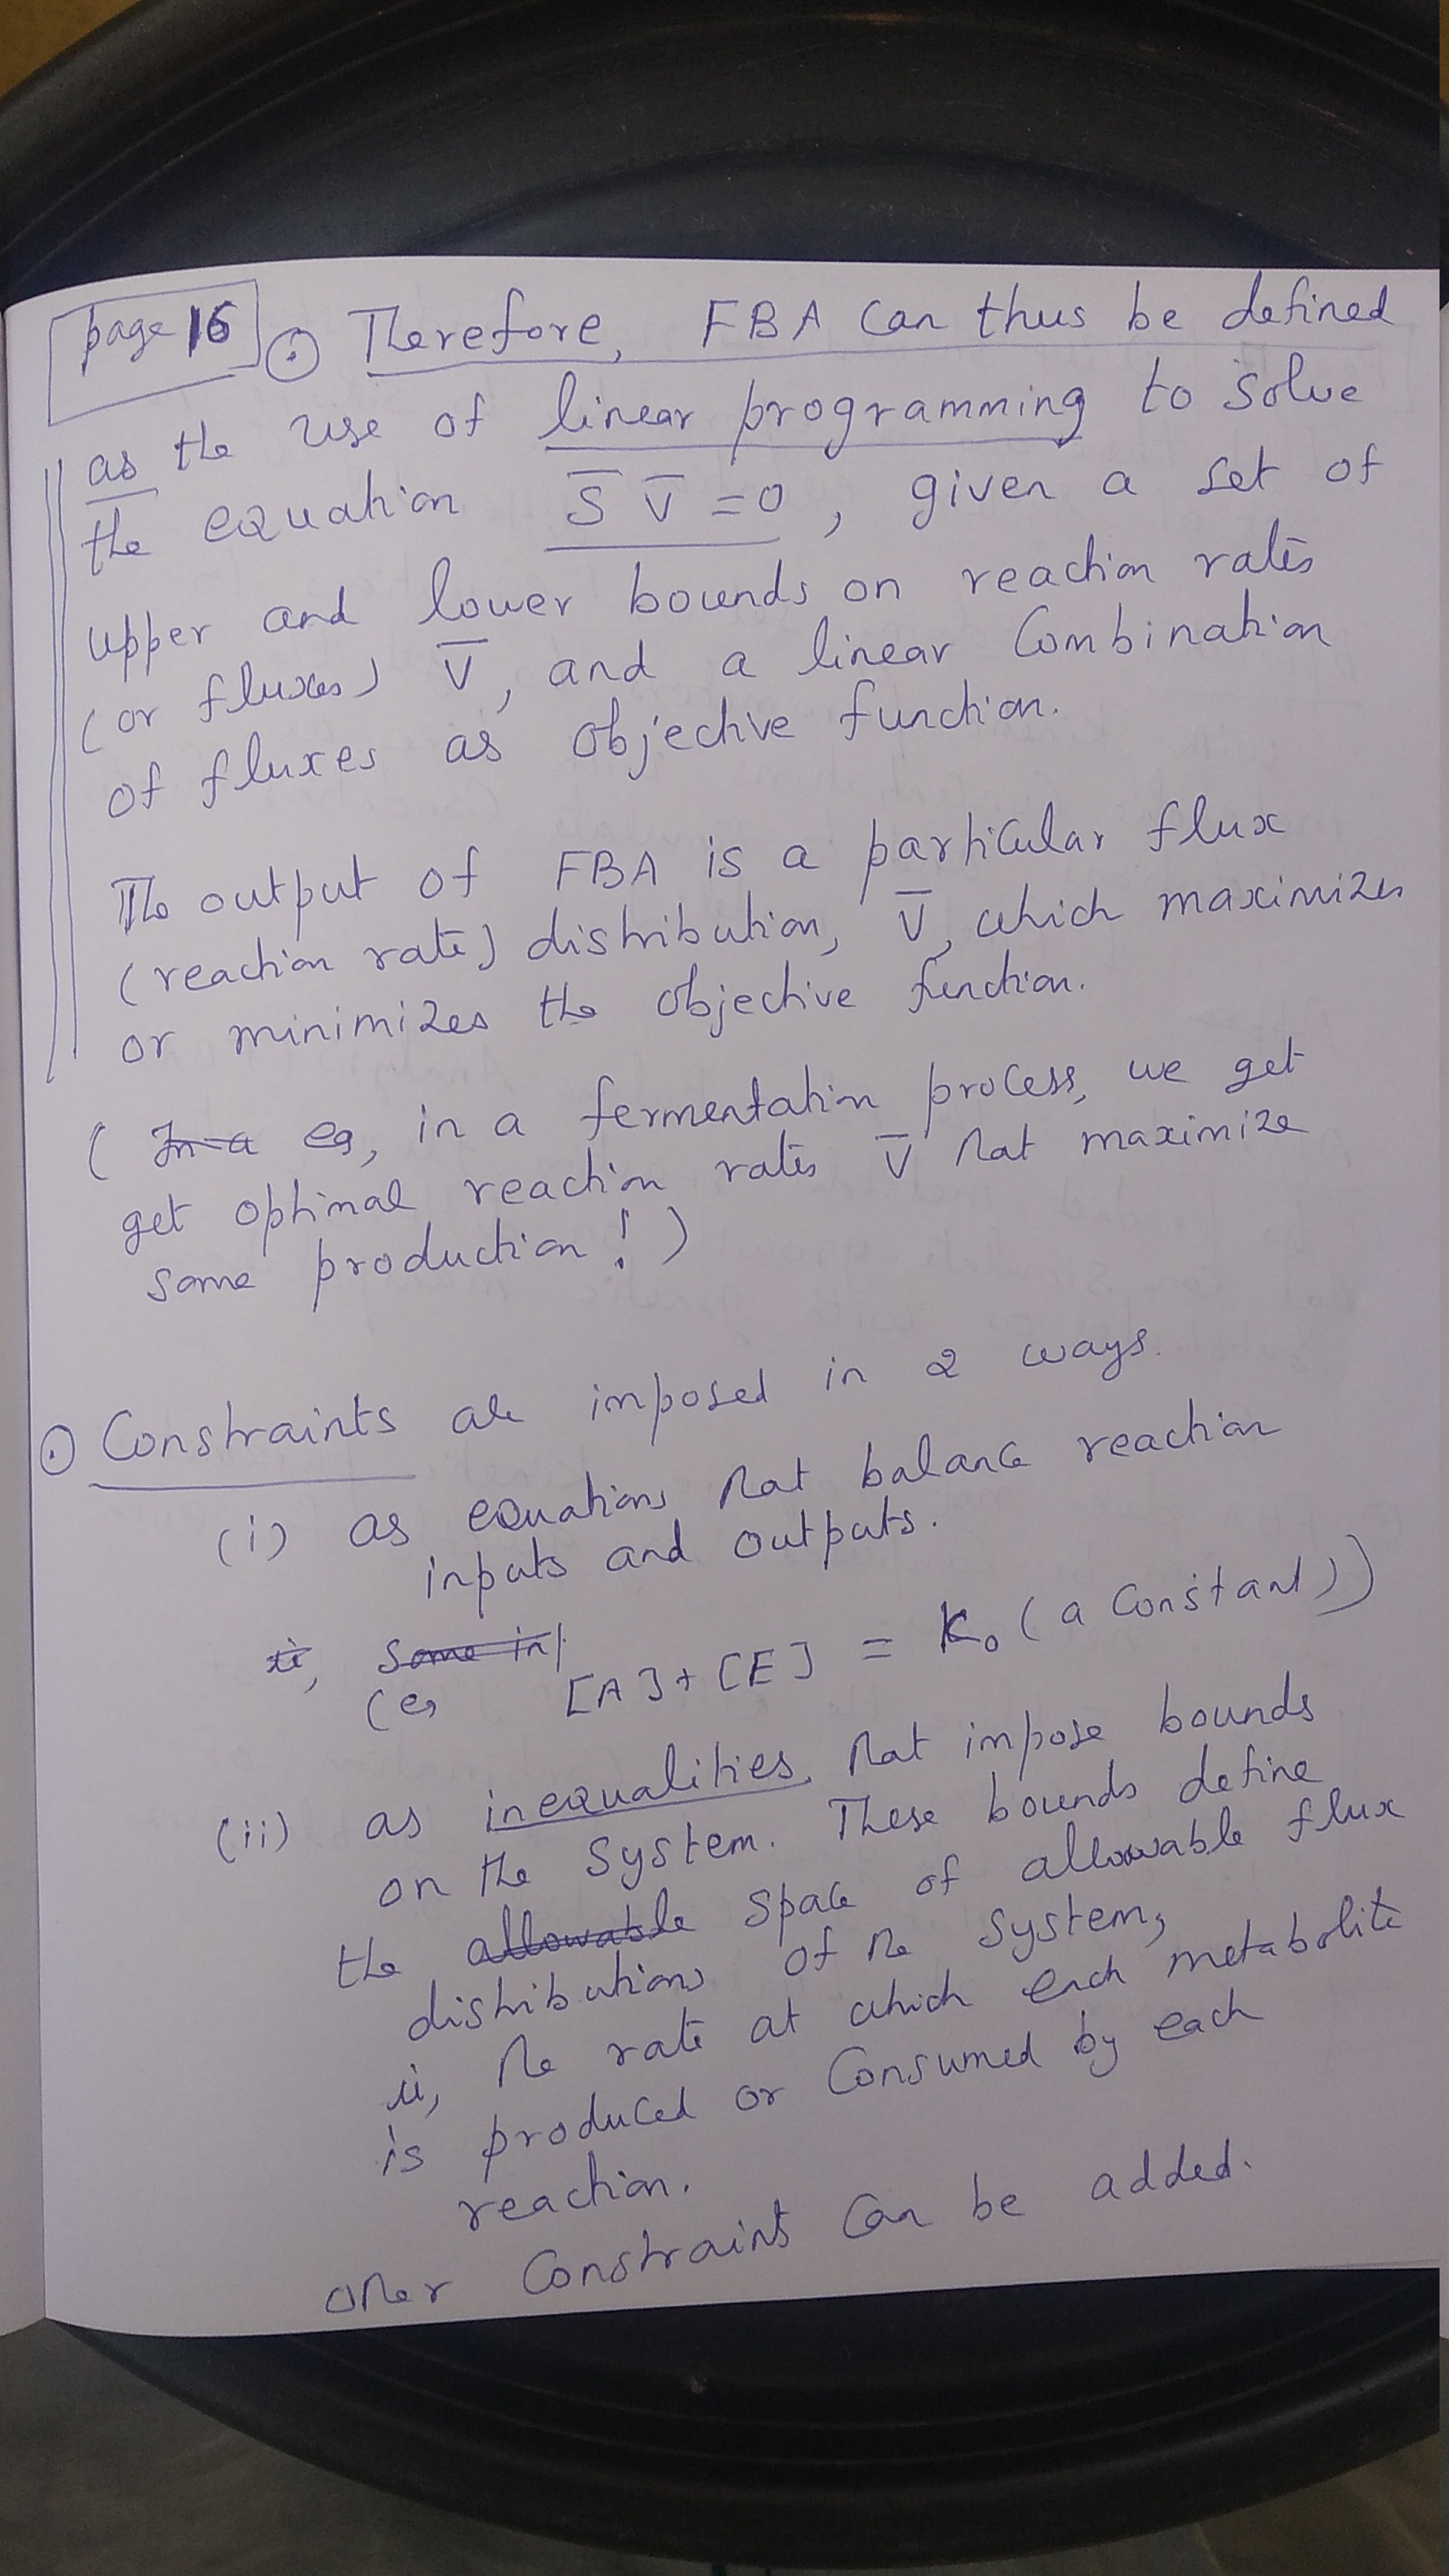 page 16
⊙ Therefore, FBA can thus be defined
as the use of linear programming to solve
the equation S̄ V̄ = 0, given a set of
upper and lower bounds on reaction rates
(or fluxes) V̄, and a linear Combination
of fluxes as objective function.
The output of FBA is a particular flux
(reaction rate) distribution, V̄, which maximizes
or minimizes the objective function.
( In a eg, in a fermentation process, we get
get optimal reaction rates V̄ that maximize
some production! )
⊙ Constraints are imposed in 2 ways.
(i) as equations that balance reaction
inputs and outputs.
ie, Some inp
(eg [A] + [E] = K₀ (a Constant))
(ii) as inequalities, that impose bounds
on the System. These bounds define
the allowable space of allowable flux
distributions of the system,
ie, the rate at which each metabolite
is produced or Consumed by each
reaction.
other Constraints Can be added.